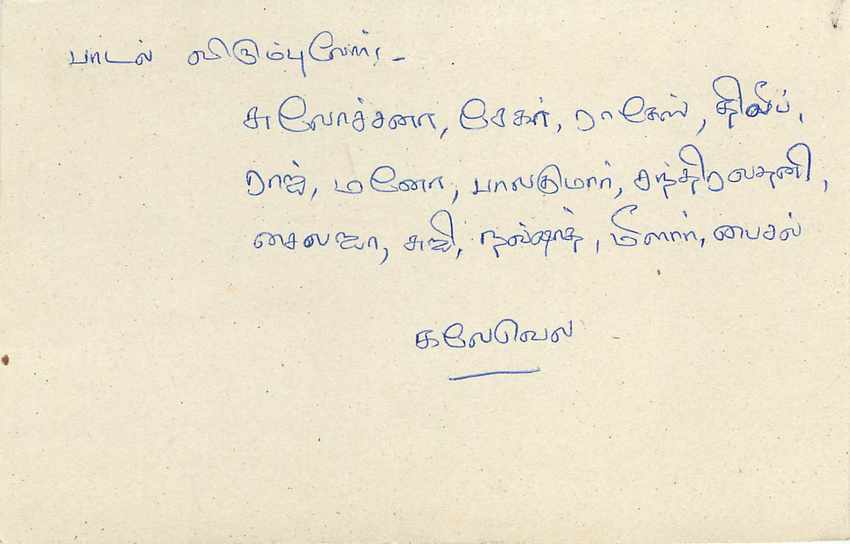 பாடல் விரும்புவோர் -
சுலோச்சனா, சேகர், ராகேஸ், திலீப்,
ராஜ், மனோ, பாலகுமார், சந்திரவதனி,
சைலஜா, சுஜி, நவ்ஷாத், மீனார், பைசல்
கலேவெல